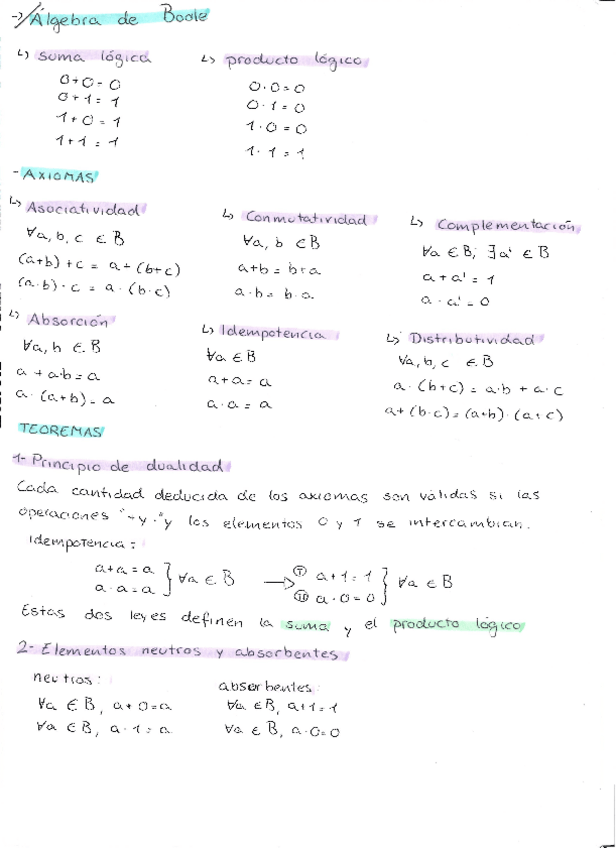 → Álgebra de Boole
↳ suma lógica
0+0=0
0+1=1
1+0=1
1+1=1
↳ producto lógico
0·0=0
0·1=0
1·0=0
1·1=1
- AXIOMAS
↳ Asociatividad
∀a, b, c ∈ B
(a+b)+c = a+(b+c)
(a·b)·c = a·(b·c)
↳ Conmutatividad
∀a, b ∈ B
a+b = b+a
a·b = b·a
↳ Complementación
∀a ∈ B, ∃a' ∈ B
a+a' = 1
a·a' = 0
↳ Absorción
∀a, b ∈ B
a + a·b = a
a·(a+b) = a
↳ Idempotencia
∀a ∈ B
a+a = a
a·a = a
↳ Distributividad
∀a, b, c ∈ B
a·(b+c) = a·b + a·c
a+(b·c) = (a+b)·(a+c)
TEOREMAS
1- Principio de dualidad
Cada cantidad deducida de los axiomas son válidas si las
operaciones "+ y ·" y los elementos 0 y 1 se intercambian.
Idempotencia:
a+a=a } ∀a ∈ B → Ⓘ a+1=1 } ∀a ∈ B
a·a=a Ⓘ Ⓘ a·0=0
Estas dos leyes definen la suma y el producto lógico
2- Elementos neutros y absorbentes
neutros:
∀a ∈ B, a+0=a
∀a ∈ B, a·1=a
absorbentes:
∀a ∈ B, a+1=1
∀a ∈ B, a·0=0